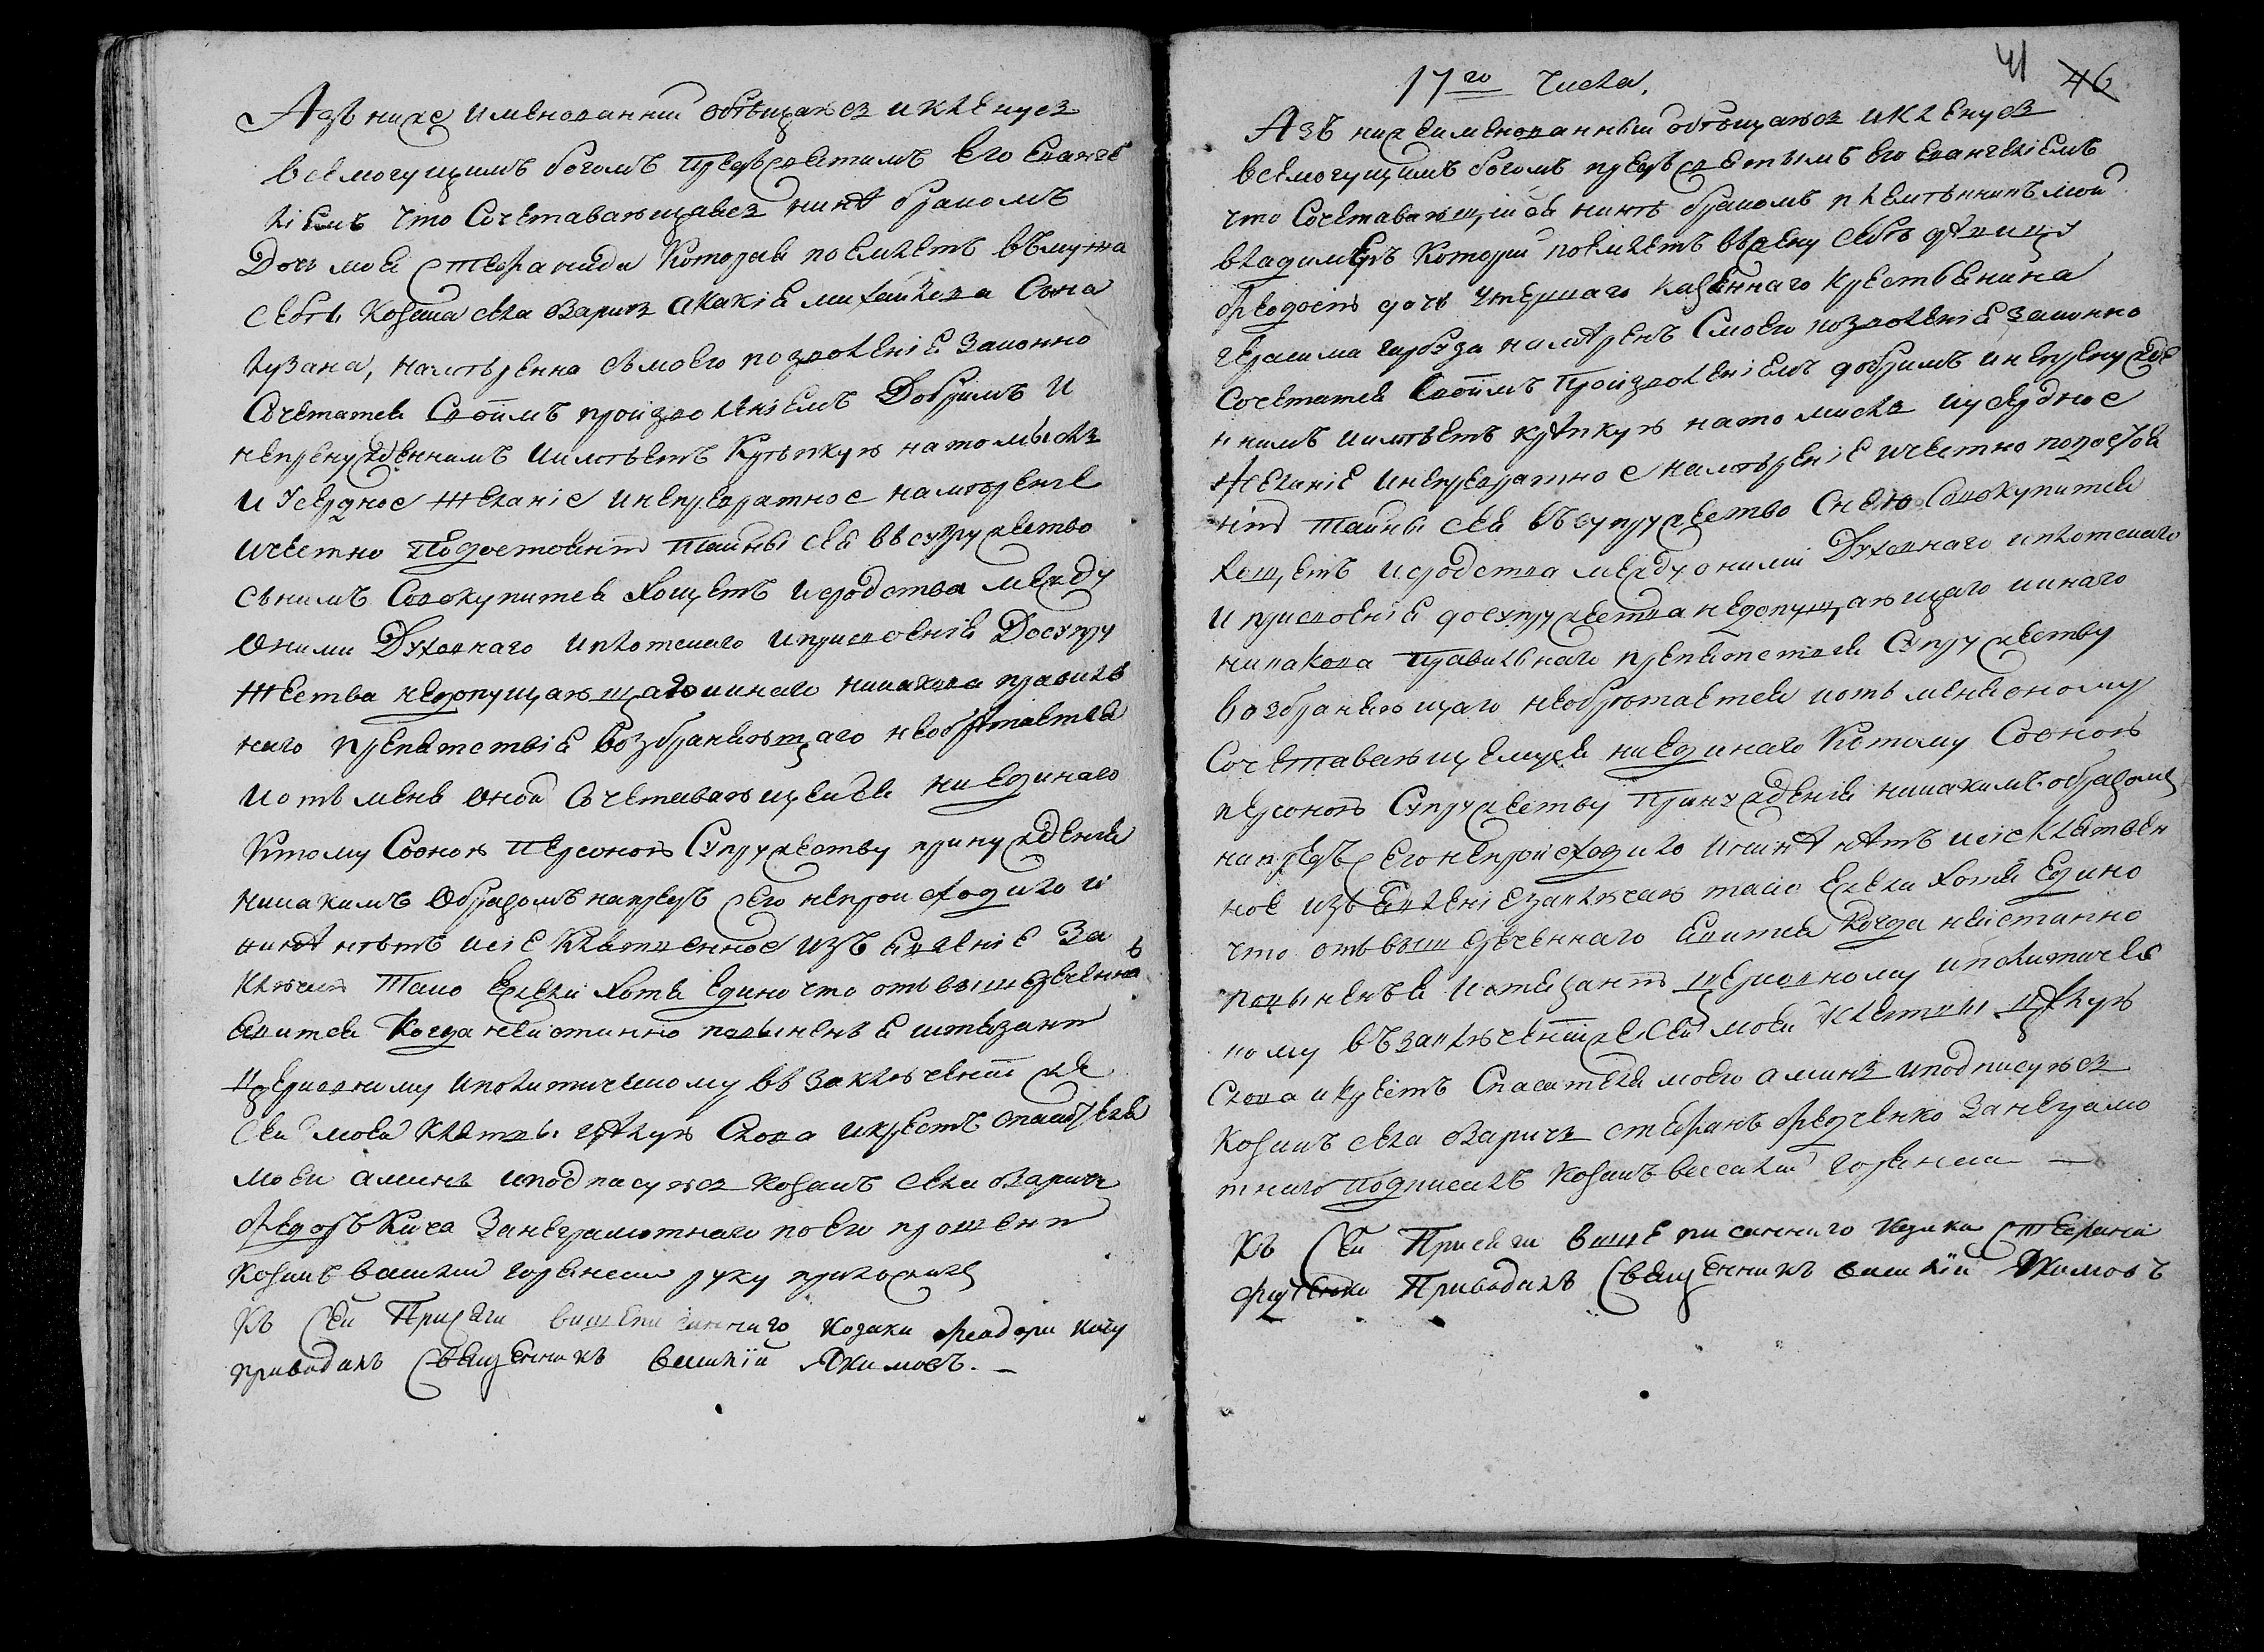 Азъ ниже именованний обѣщаюсь и кленусь
всемогущимъ богомъ предъ святимъ Его Еванге
ліемъ что Сочетавающаяся нинѣ бракомъ
Дочь моя Стефанида Которая поемлетъ въ мужа
себѣ козака села Озаричь Акакія Михайлова Сына
Лузана, намѣренна съ моего позволенія законно
Сочетатся Своимъ произволеніемъ Добримъ и
непренужденнимъ и имѣетъ Крѣпкую на то мысль
и Усердное желаніе и непревратное намѣреніе
и честно По достоянію тайны сея въ супружество
съ нимъ Совокупится хощетъ и сродства между
Оними Духовнаго и плотскаго и присвоенія До супру
жества недопущающаго и инаго никакова правиль
наго препятствія возбраняющаго необрѣтается
и отъ мене оной Сочетавающейся ни единаго
Ктому Сооною Персоною Супружеству принужденія
никакимъ Образомъ напредъ сего непроисходило и
нинѣ нѣтъ и сіе клятвенное изъявленіе За
ключаю Тако Ежели хотя Едино что отъ вишереченна
Явится Когда неистинно повиненъ я истязанію
Церковному и политическому въ заключеніи же
Сей моей клятвы цѣлую Слова и крестъ спасителя
моего аминь и подписуюсь козакъ села Озаричь
Федоръ Кича За неграмотнаго по его прошенію
Козакъ василий горѣнски руку приложилъ
Къ Сей Присяги вишеписаннаго Козака Феодора Кичу
приводилъ Священникъ василій Якимовъ. —
41 46
17го Числа.
Азъ нижеименованный обѣщаюсь и кленусь
всемогущимъ богомъ предъ святымъ его евангеліемъ
что Сочетавающійся нинѣ бракомъ племѣнникъ мой
владимеръ Которий поемлетъ в жену себѣ дѣвицу
Феодосію дочь умершаго казеннаго Крестьянина
герасима намѣренъ Смоего позволенія законно
Сочетатся Своимъ Произволеніемъ добримъ и непренужде
ннимъ и имѣетъ крѣпкую на то мисль и усердное
желаніе и непревратное намѣреніе и честно по достоя
нію тайны сея въ супружество Снею Совокупится
хощетъ и сродства между оними Духовнаго и плотскаго
и присвоенія до супружества недопущающаго и инаго
никакова Правильнаго препятствія Супружеству
возбраняющаго необрѣтается и отъ меня оному
Сочетавающемуся ни единаго Ктому Сооною
персоною Супружеству Принужденія никакимъ образомъ
напредъ сего непроисходило и нинѣ нѣтъ и сіе клятвен
ное изъявленіе заключаю тако Ежели хотя Едино
что отъ вышереченнаго Явится Когда неистинно
повыненъ я истязанію церковному и политическо
кому въ заключеніи же Сей моей Клятвы цѣлую
Слова и крестъ Спасителя моего аминь и подписуюсь
Козакъ села Озаричь стефанъ Федченко За неграмо
тнаго Подписалъ козакъ василий горѣнски —
Къ Сей Присяги вишеписаннаго Козака Стефана
Федченка Приводилъ Священникъ василій Якимовъ